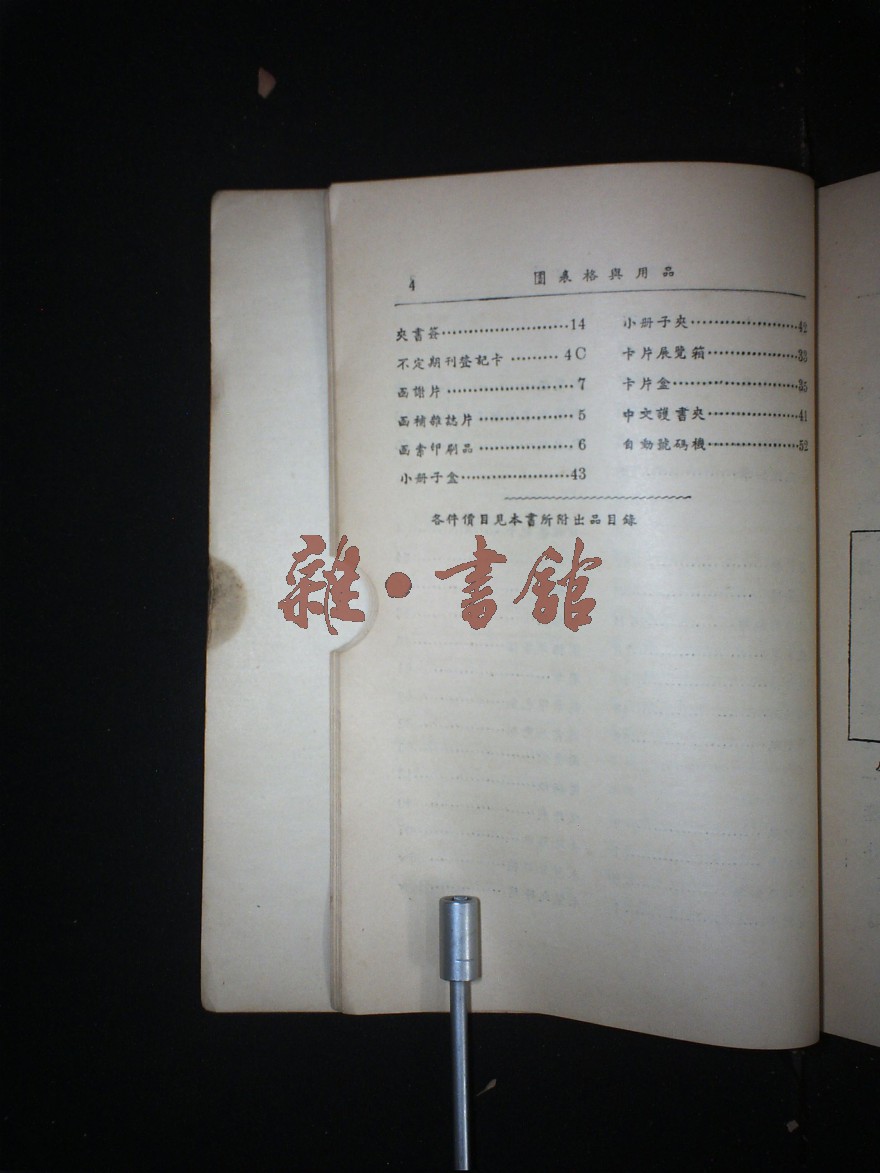 4 圕表格與用品
夾書簽……………………14
不定期刊登記卡………4C
函謝片……………………7
函補雜誌片………………5
函索印刷品………………6
小册子盒…………………43
小册子夾…………………42
卡片展覽箱………………33
卡片盒……………………35
中文護書夾………………41
自動號碼機………………52
各件價目見本書所附出品目錄
雜·書館